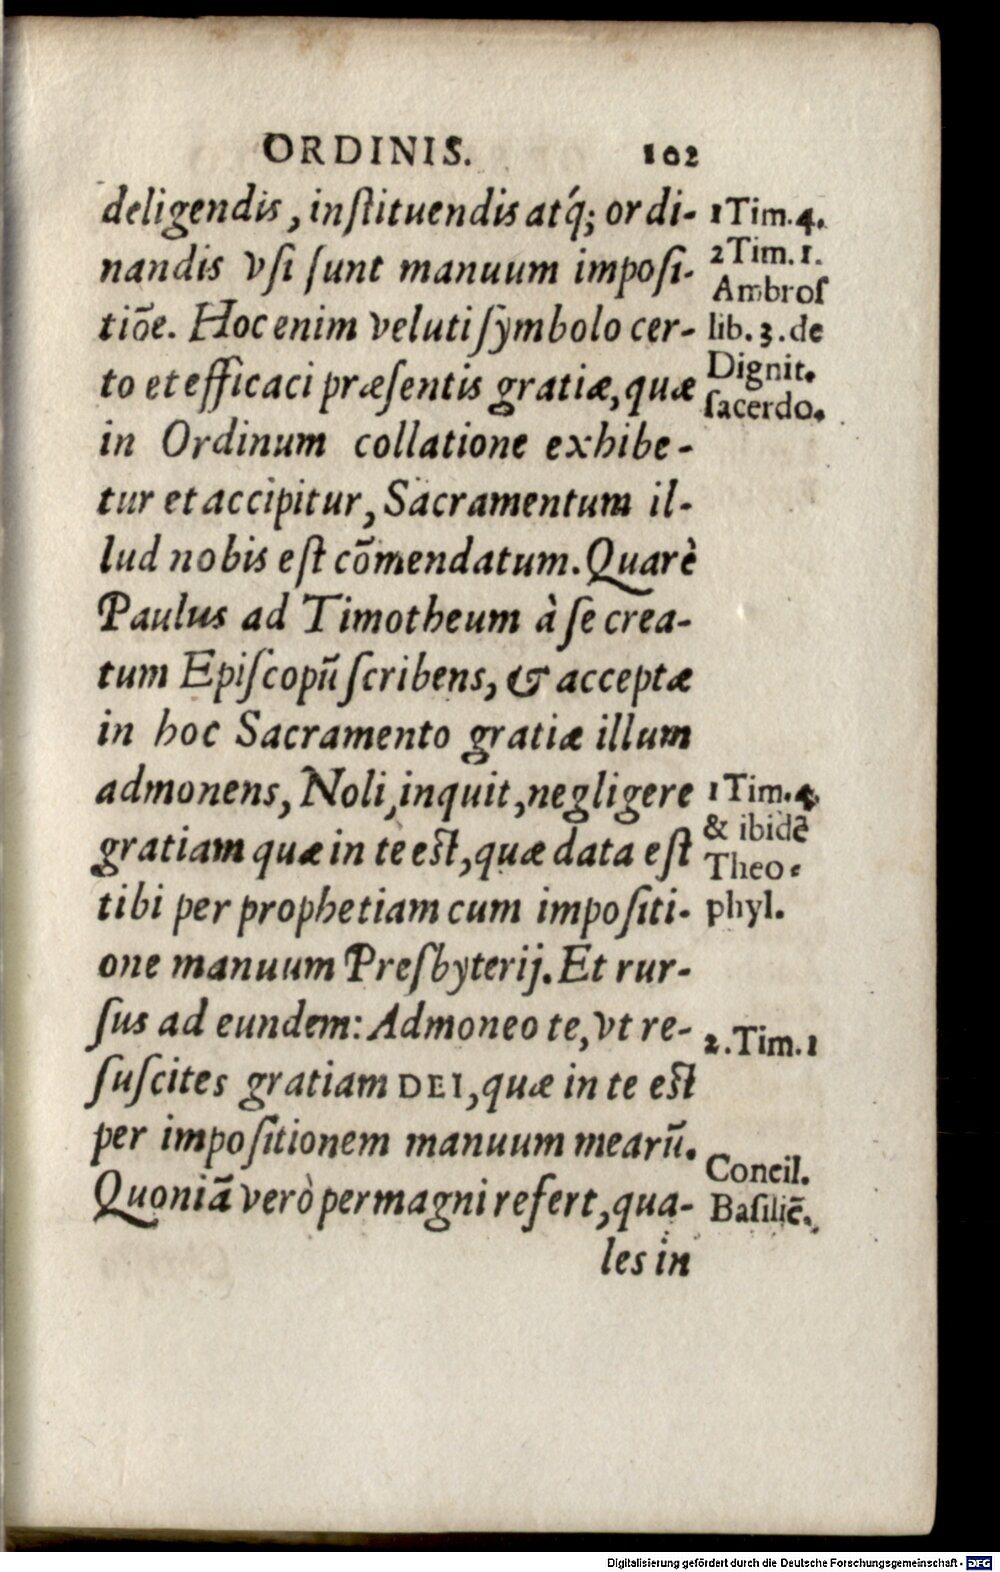 ORDINIS. 102
deligendis, inſtituendis atq́; ordi-
nandis vſi ſunt manuum impoſi-
tiōe. Hoc enim veluti ſymbolo cer-
to et efficaci præſentis gratiæ, quæ
in Ordinum collatione exhibe-
tur et accipitur, Sacramentum il-
lud nobis eſt cōmendatum. Quarè
Paulus ad Timotheum à ſe crea-
tum Epiſcopū ſcribens, & acceptæ
in hoc Sacramento gratiæ illum
admonens, Noli, inquit, negligere
gratiam quæ in te eſt, quæ data eſt
tibi per prophetiam cum impoſiti-
one manuum Preſbyterij. Et rur-
ſus ad eundem: Admoneo te, vt re-
ſuſcites gratiam DEI, quæ in te eſt
per impoſitionem manuum mearū.
Quoniā verò permagni refert, qua-
les in
1 Tim. 4.
2 Tim. 1.
Ambroſ
lib. 3. de
Dignit.
ſacerdo.
1 Tim. 4.
& ibidē
Theo-
phyl.
2. Tim. 1
Concil.
Baſiliē.
Digitalisierung gefördert durch die Deutsche Forschungsgemeinschaft - DFG